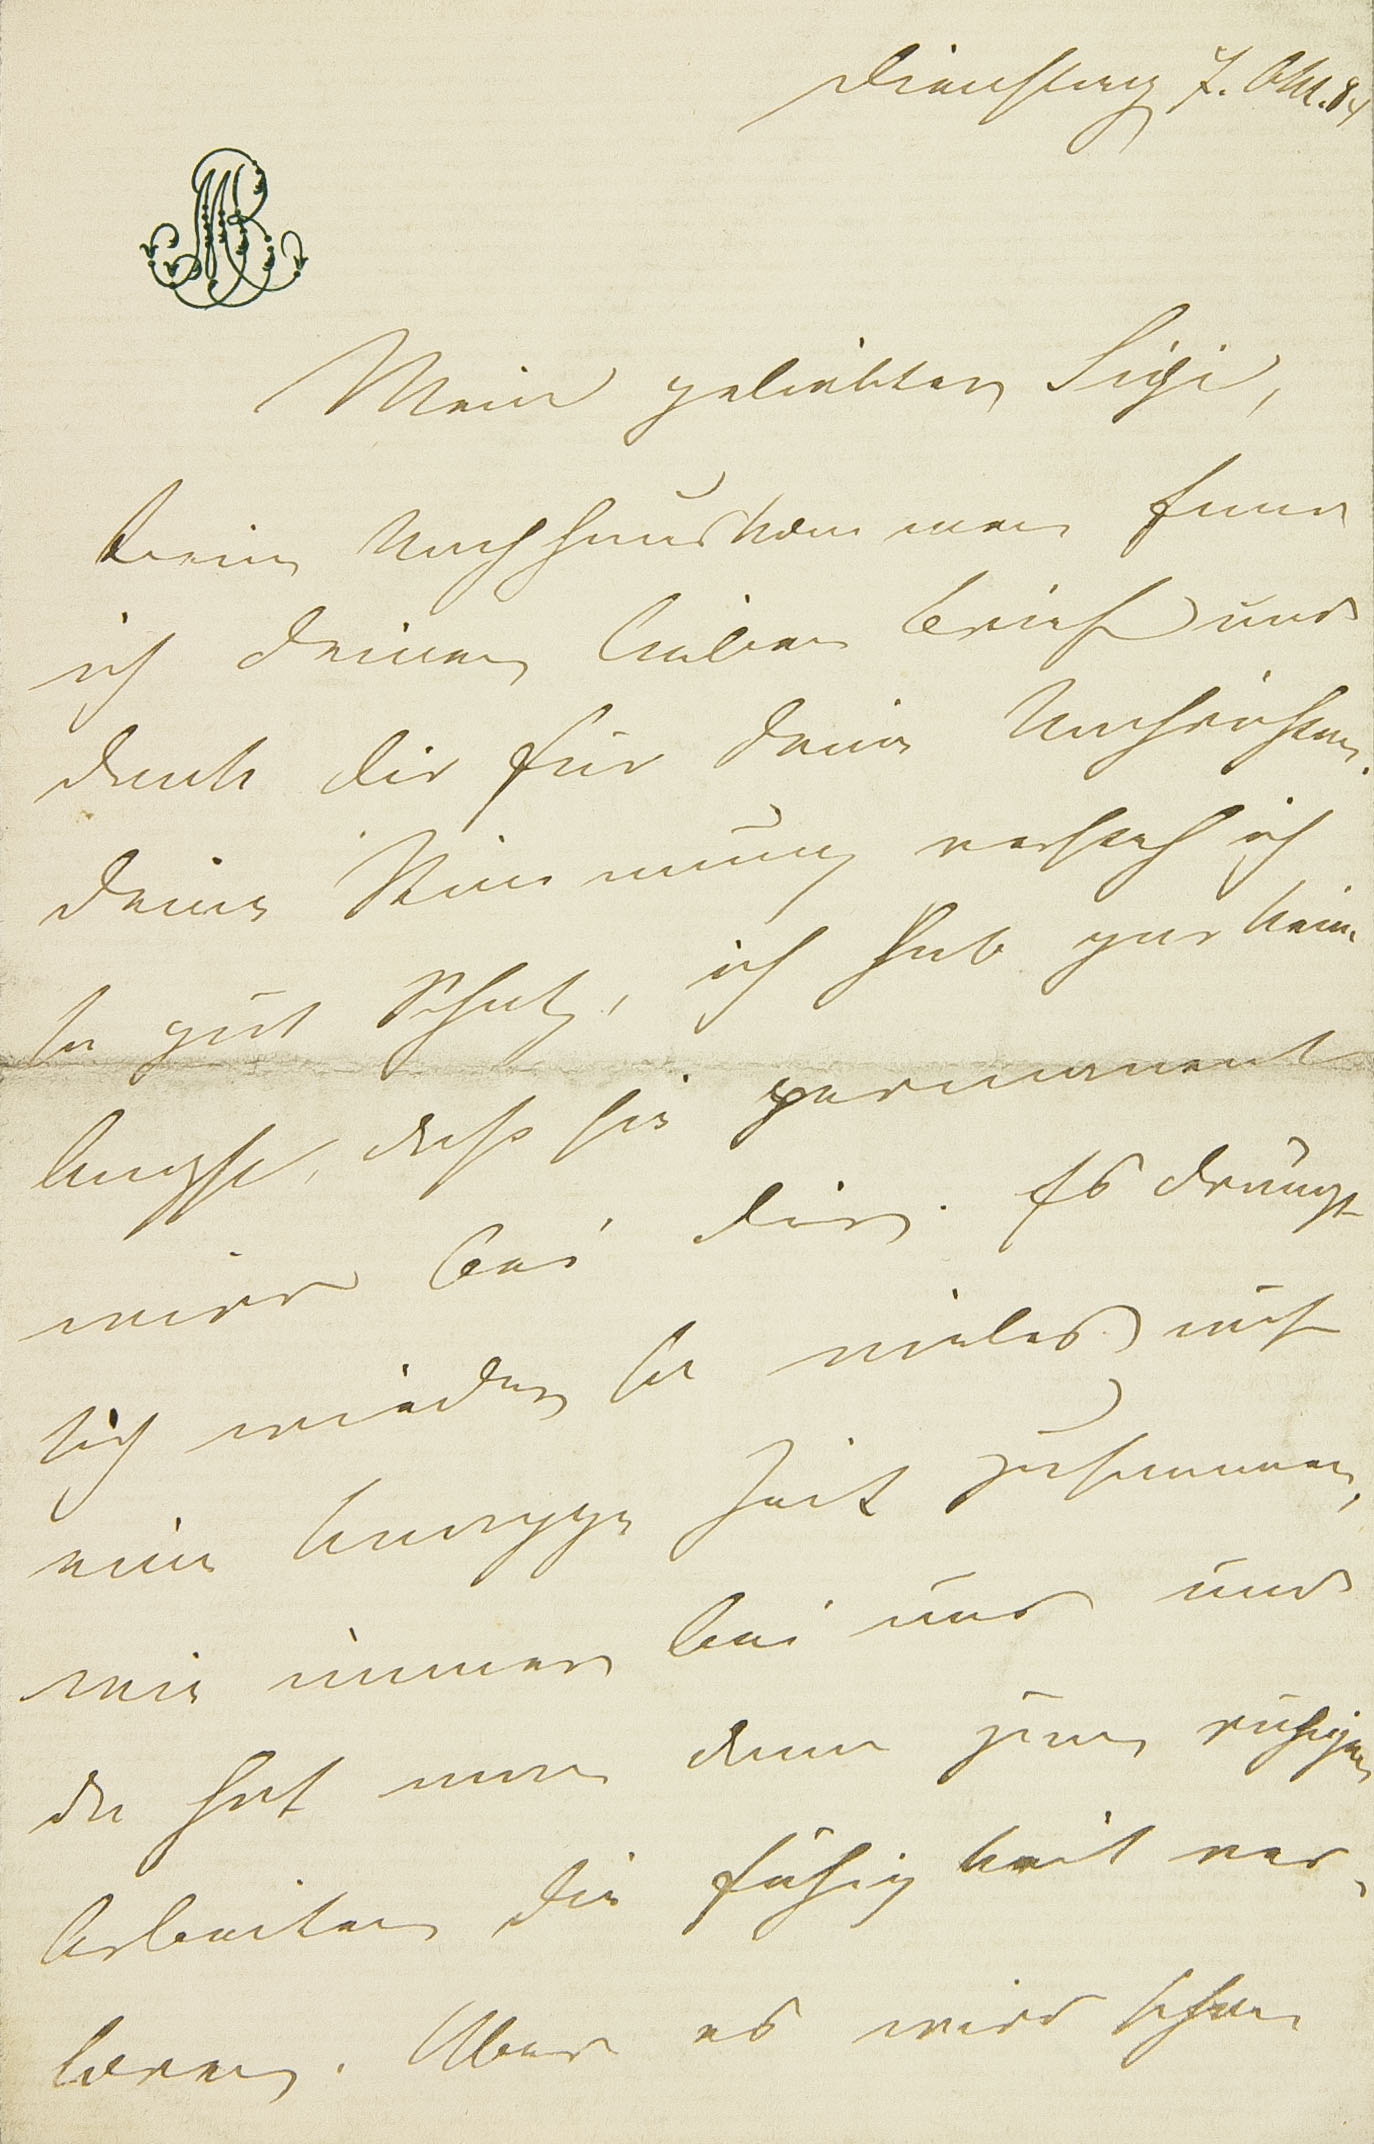 MB
Dienstag 7. Okt. 84
Mein geliebter Sigi,
beim Nachhauskommen fand
ich Deinen lieben Brief und
dank Dir für Deine Nachrichten.
Deine Stimmung versteh ich
so gut Schatz, ich hab gar keine
Angst, daß sie permanent
wird bei Dir. Es drängt
sich wieder so vieles auf
eine knappe Zeit zusammen,
wie immer bei uns und
da hat man dann zum ruhigen
Arbeiten die Fähigkeit ver-
loren. Aber es wird schon